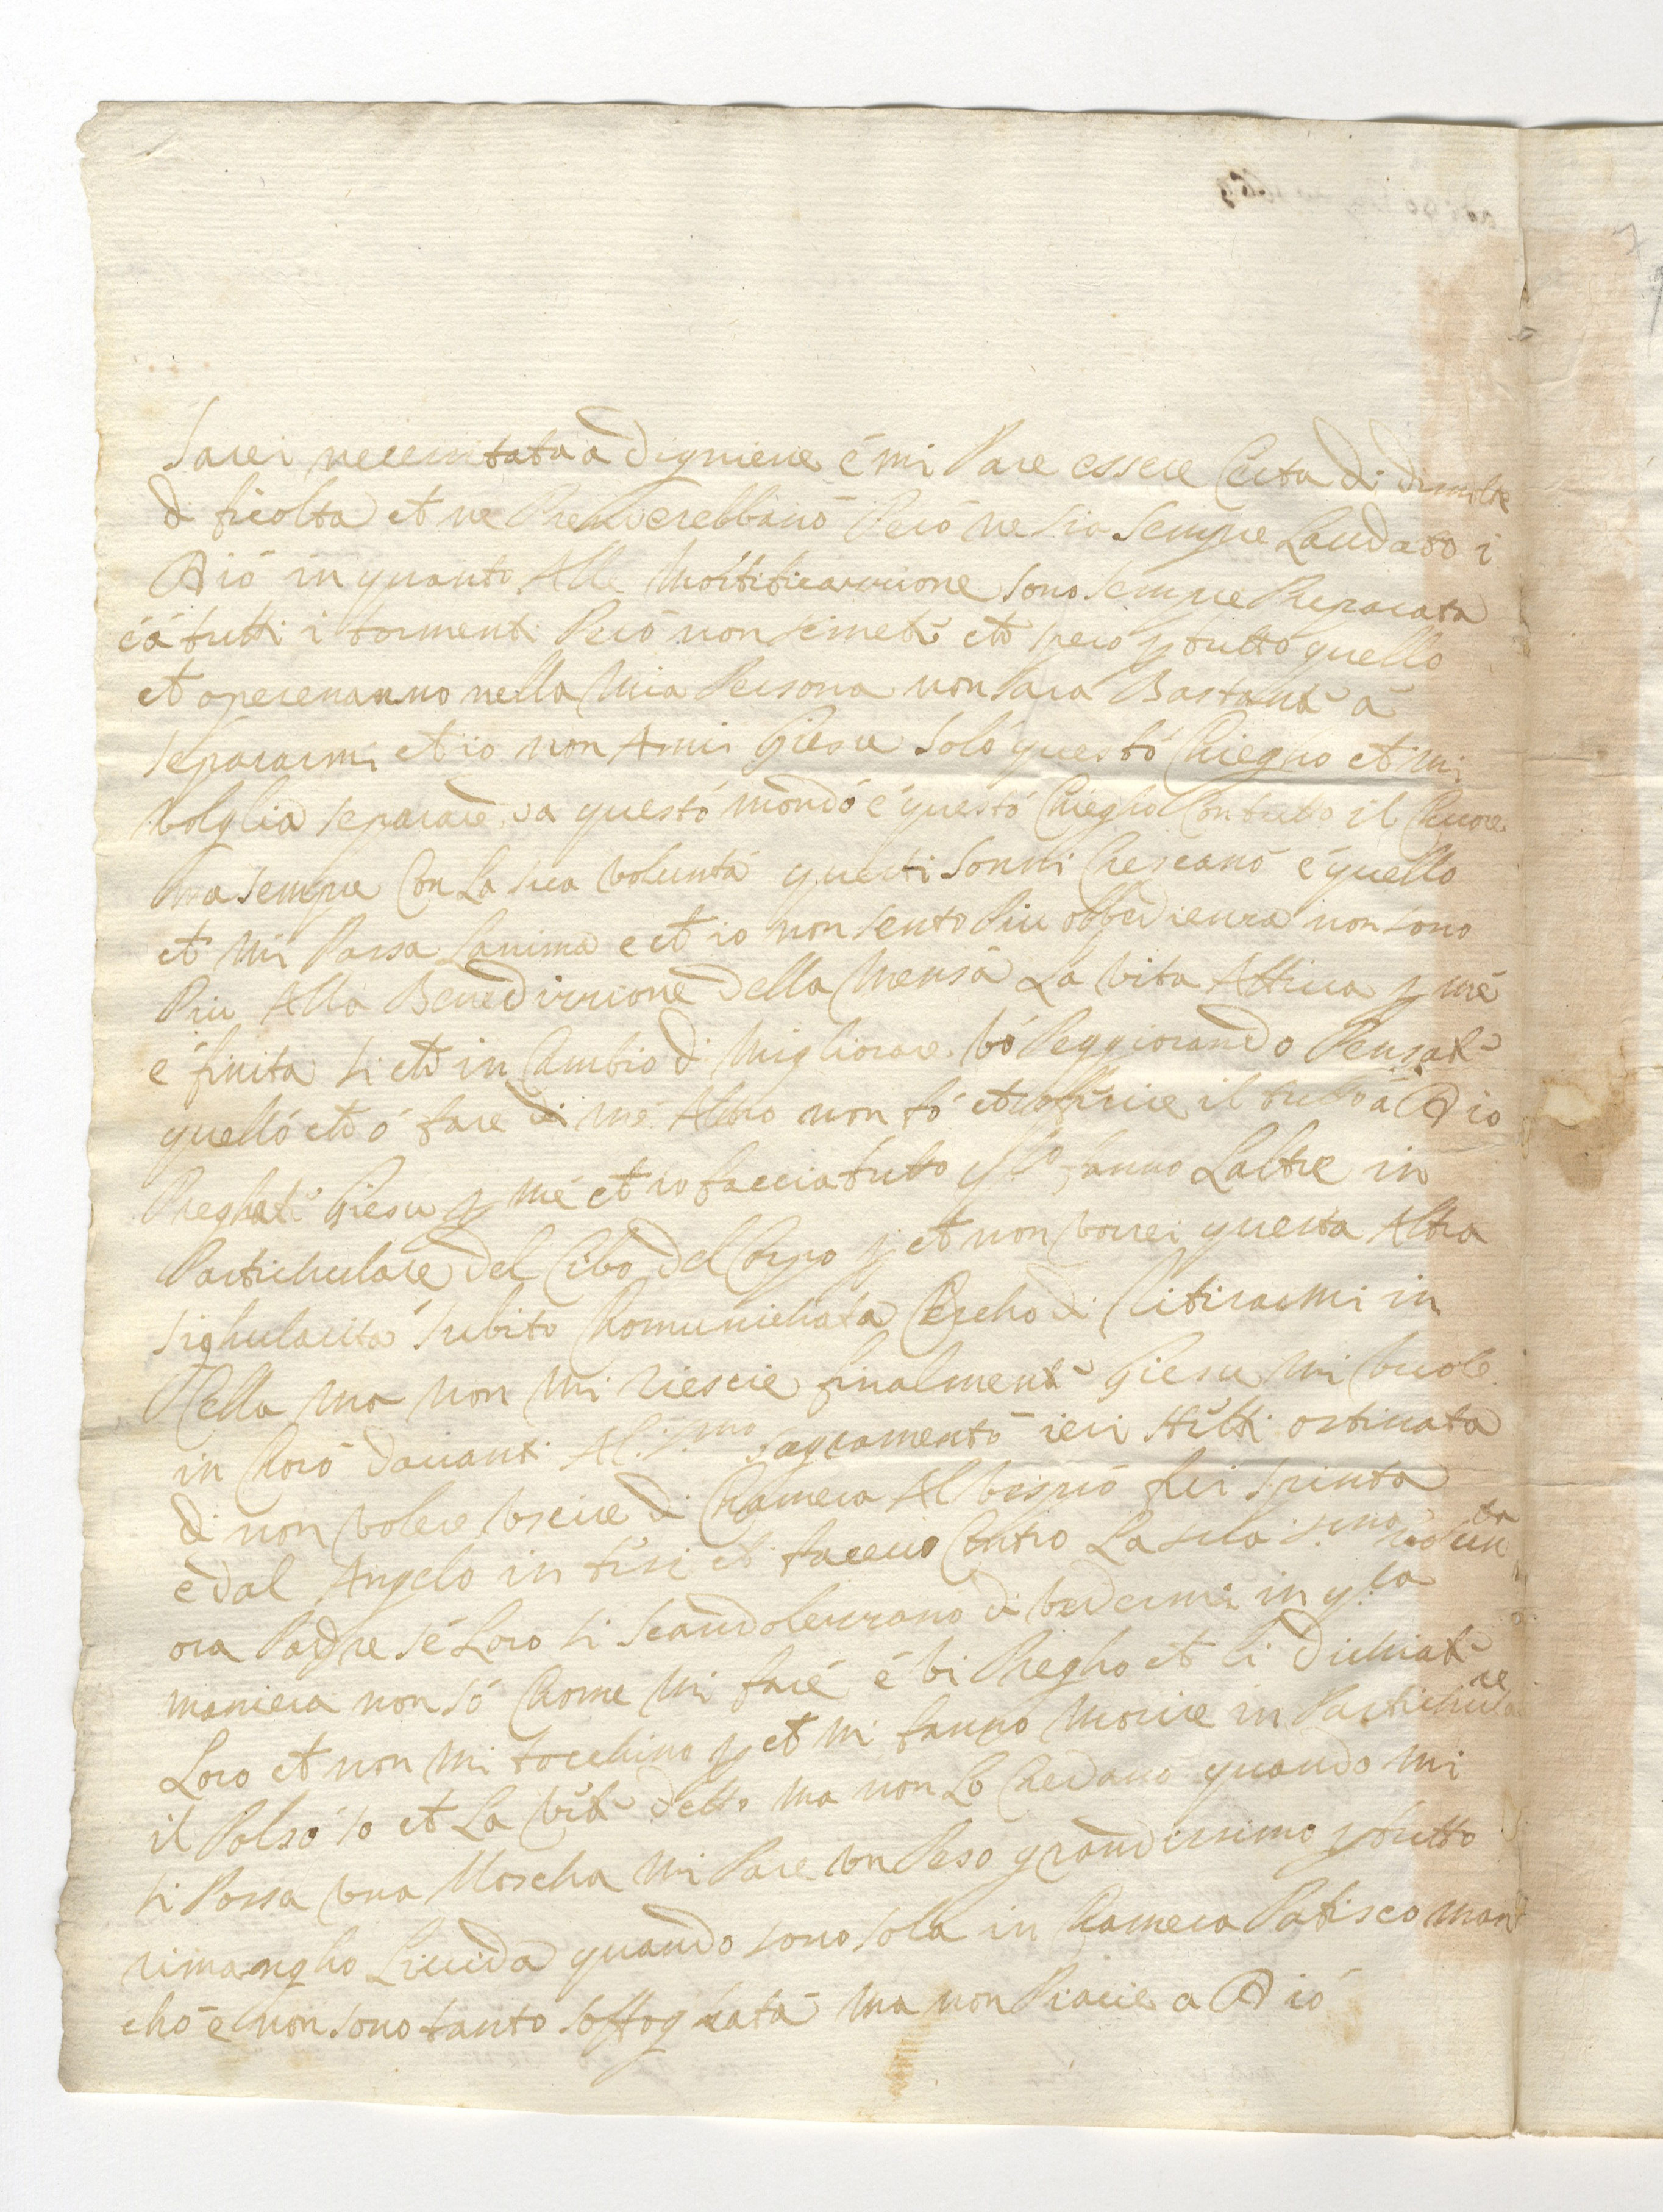 Sarei necemitata a digniene é mi Pare essere Certa di dimolte
di ficolta et ne Prenderebbanó Peró ne sia Sempre Laudato i
Dió in quanto Alle Mortificazzione sono sempre Preparata
é á tutti i tormenti Peró non temeti ch spero p tutto quello
ch opererranno nella Mia Persona non sara Bastanti á
separarmi ch io non Ami Giesu Soló questó Chiegno ch mi
volglia separare da questó mondó é questó Chiegho Con tutto il Chuore
Ma sempre Con La sua voluntá questi sonni Crescanó é quello
ch Mi Passa Lanima e ch io non sento Piu obbedienza non sono
Piu Alla Benedizzione della Mensa La vita Attiua p mé
é finita si ch in Cambio di Migliorare vó Peggiorando Pensati
quelló ch ó fare di mé Altro non fó ch offirire il tuttó á Dio
Preghati Giesu p mé ch io faccia tutto q.lo fanno Laltre in
Partichulare del Cibo del Corpo p ch non vorrei questa Altra
Sighularitá Subito Chomunichata Cercho di Ritirarmi in
Cella ma non mi riescie finalmenti Giesu mi vuole
in Choró dauanti Al S.mo Sagramentó ieri stetti ostinata
di non volere vscire di Chamera Al vespró fui spinta
é dal Angelo in tesi ch faceuo Contro La sua S.ma voluntá
ora Padre sé Loro si scandolezzano di vedermi in q.ta
maniera non só Chome mi faré é vi Pregho ch li dichiati
Loro ch non mi tocchino p ch mi fanno morire in Partichulare
il Polsó Io ch La viti detto ma non Lo Chredano quando mi
si Possa vna Moscha mi Pare vn Peso grandissimo p tutto
rimangho Liuida quando sono sola in Chamera Patisco man
chó é non sono tanto soffoghata ma non Piacie a Dió